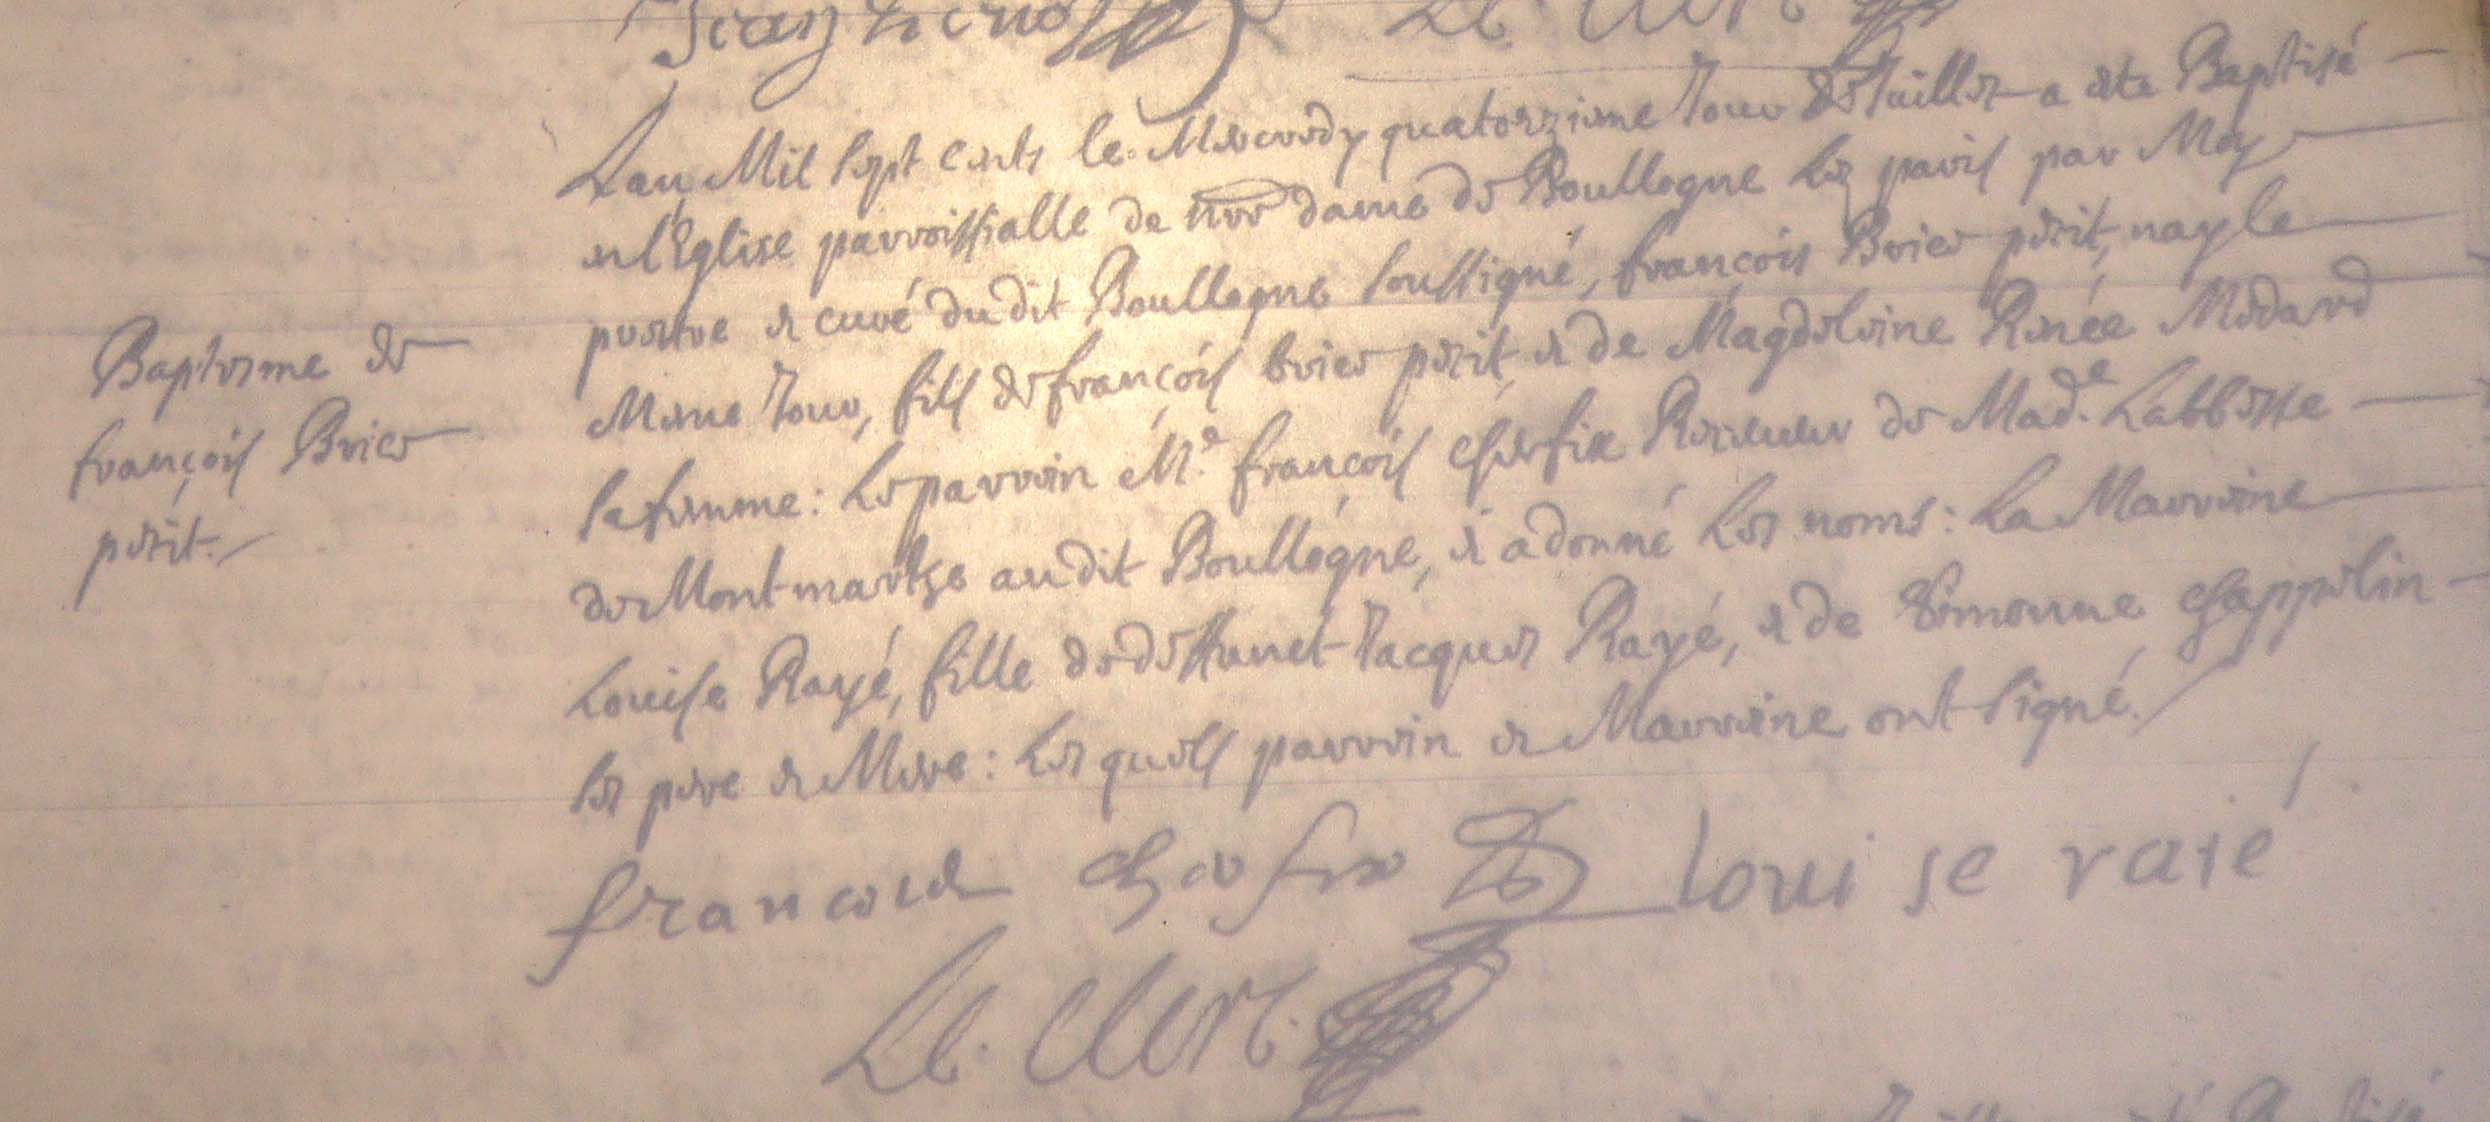 Le Clerc
Lan Mil sept cents le Mercredy quatorziesme Jour de Juillet a esté Baptisé
en l'Eglise parroissialle de nre dame de Boullogne les paris par Moy
prestre et curé dudit Boullogne soussigné, françois Brice petit, nay le
Mesme Jour, fils de françois brice petit et de Magdeleine Renée Medard
sa femme : Le parrein Me. françois cherfix Receveur de Made. Labbesse
de Montmartre audit Boullogne, et a donné les noms : La Marreine
Louise Rayé, fille de deffunct Jacques Rayé, et de Simonne chappelin
ses pere et Mere : Les quels parrein et Marreine ont signé.
Baptesme de
françois Brice
petit.
francois cherfix louise raié
Le Clerc